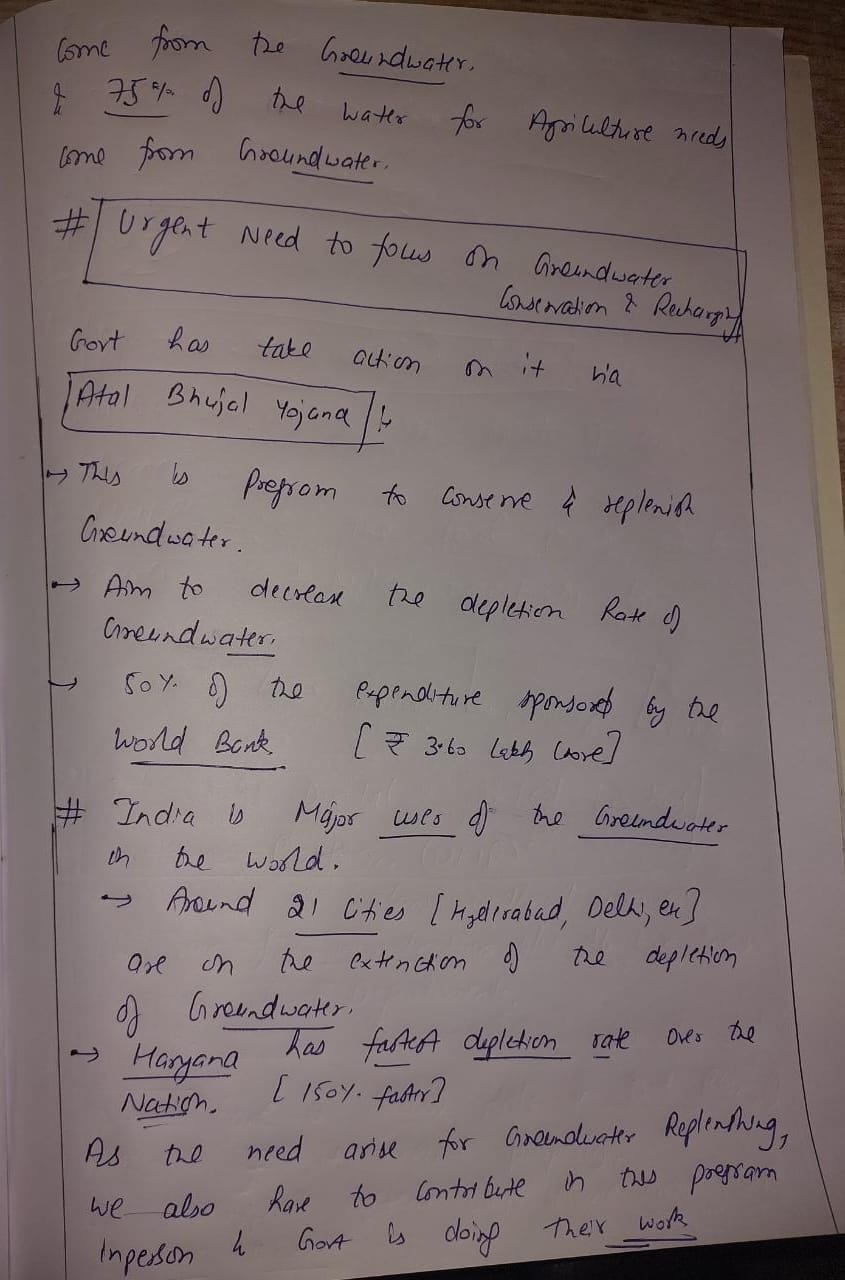 Come from the Groundwater.
& 75% of the water for Agriculture needs
come from Groundwater.
# Urgent Need to focus on Groundwater
Conservation & Recharging
Govt has take action on it via
Atal Bhujal Yojana :-
→ This is Program to conserve & replenish
Groundwater.
→ Aim to decrease the depletion Rate of
Groundwater.
→ 50% of the expenditure sponsored by the
World Bank [₹ 3.60 Lakh Crore]
# India is Major uses of the Groundwater
in the world.
→ Around 21 Cities [Hyderabad, Delhi, etc]
are on the extenction of the depletion
of Groundwater.
→ Haryana has fastest depletion rate over the
Nation. [150% faster]
As the need arise for Groundwater Replenshing,
we also have to contribute in this program
Inperson & Govt is doing their work